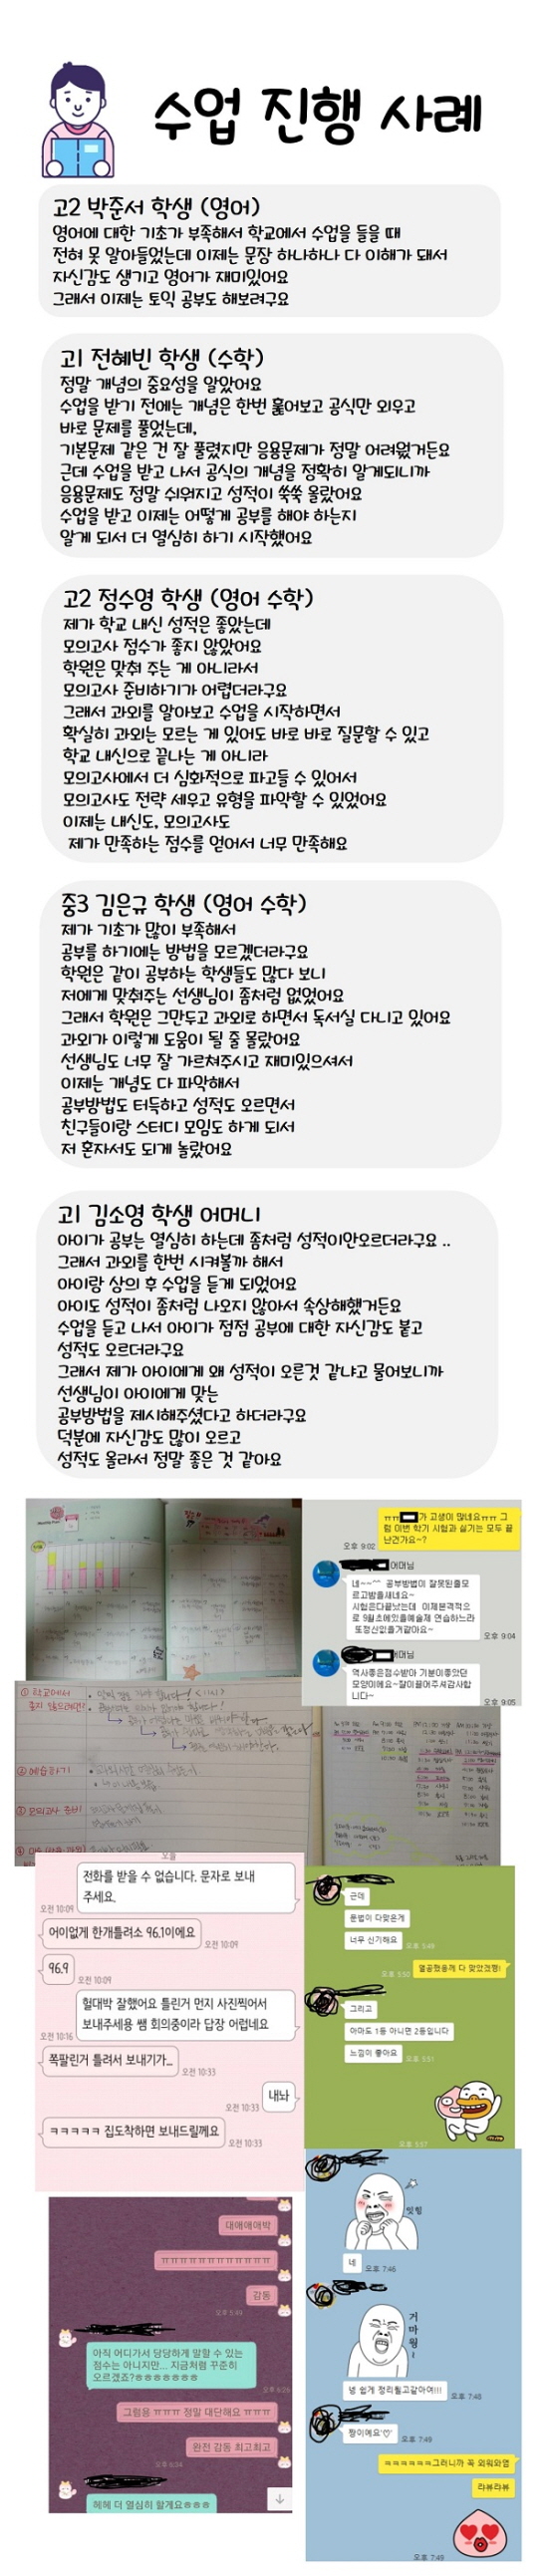 수업 진행 사례
고2 박준서 학생 (영어)
영어에 대한 기초가 부족해서 학교에서 수업을 들을 때
전혀 못 알아들었는데 이제는 문장 하나하나 다 이해가 돼서
자신감도 생기고 영어가 재미있어요
그래서 이제는 토익 공부도 해보려구요
고1 전혜빈 학생 (수학)
정말 개념의 중요성을 알았어요
수업을 받기 전에는 개념은 한번 훑어보고 공식만 외우고
바로 문제를 풀었는데,
기본문제 같은 건 잘 풀렸지만 응용문제가 정말 어려웠거든요
근데 수업을 받고 나서 공식의 개념을 정확히 알게되니까
응용문제도 정말 쉬워지고 성적이 쑥쑥 올랐어요
수업을 받고 이제는 어떻게 공부를 해야 하는지
알게 되서 더 열심히 하기 시작했어요
고2 정수영 학생 (영어 수학)
제가 학교 내신 성적은 좋았는데
모의고사 점수가 좋지 않았어요
학원은 맞춰 주는 게 아니라서
모의고사 준비하기가 어렵더라구요
그래서 과외를 알아보고 수업을 시작하면서
확실히 과외는 모르는 게 있어도 바로 바로 질문할 수 있고
학교 내신으로 끝나는 게 아니라
모의고사에서 더 심화적으로 파고들 수 있어서
모의고사도 전략 세우고 유형을 파악할 수 있었어요
이제는 내신도, 모의고사도
제가 만족하는 점수를 얻어서 너무 만족해요
중3 김은규 학생 (영어 수학)
제가 기초가 많이 부족해서
공부를 하기에는 방법을 모르겠더라구요
학원은 같이 공부하는 학생들도 많다 보니
저에게 맞춰주는 선생님이 좀처럼 없었어요
그래서 학원은 그만두고 과외로 하면서 독서실 다니고 있어요
과외가 이렇게 도움이 될 줄 몰랐어요
선생님도 너무 잘 가르쳐주시고 재미있으셔서
이제는 개념도 다 파악해서
공부방법도 터득하고 성적도 오르면서
친구들이랑 스터디 모임도 하게 되서
저 혼자서도 되게 놀랐어요
고1 김소영 학생 어머니
아이가 공부는 열심히 하는데 좀처럼 성적이안오르더라구요 ..
그래서 과외를 한번 시켜볼까 해서
아이랑 상의 후 수업을 듣게 되었어요
아이도 성적이 좀처럼 나오지 않아서 속상해했거든요
수업을 듣고 나서 아이가 점점 공부에 대한 자신감도 붙고
성적도 오르더라구요
그래서 제가 아이에게 왜 성적이 오른것 같냐고 물어보니까
선생님이 아이에게 맞는
공부방법을 제시해주셨다고 하더라구요
덕분에 자신감도 많이 오르고
성적도 올라서 정말 좋은 것 같아요
ㅠㅠ 가 고생이 많네요ㅠㅠ 그
럼 이번 학기 시험과 실기는 모두 끝
난건가요~?
오후 9:02
어머님
네~~^^ 공부방법이 잘못된줄모
르고밤을새네요~
시험은다끝났는데 이제본격적으
로 9월초에있을예술제 연습하느라
또정신없을거같아요~
오후 9:04
어머님
역사좋은점수받아 기분이좋았던
모양이에요~잘이끌어주셔감사합
니다~
오후 9:05
① 학교에서
② 예습하기
③ 모의고사 준비
오늘
전화를 받을 수 없습니다. 문자로 보내
주세요.
오전 10:09
어이없게 한개틀려소 96.1이에요
오전 10:09
96.9
오전 10:09
헐대박 잘했어요 틀린거 먼지 사진찍어서
보내주세용 쌤 회의중이라 답장 어럽네요
오전 10:16
쪽팔린거 틀려서 보내기가...
오전 10:33
내놔
오전 10:33
ㅋㅋㅋㅋㅋ 집도착하면 보내드릴께요
오전 10:33
근데
문법이 다맞은게
너무 신기해요
오후 5:49
열공했응께 다 맞았겠쨩!
오후 5:50
그리고
아마도 1등 아니면 2등입니다
느낌이 좋아요
오후 5:51
오후 5:57
잇힝
네
오후 7:46
거마웡~
넹 쉽게 정리될고같아여!!!
오후 7:48
짱이예요'♡'
오후 7:49
ㅋㅋㅋㅋㅋㅋ그러니까 꼭 외워와염
라뷰라뷰
오후 7:49
대애애애박
ㅠㅠㅠㅠㅠㅠㅠㅠㅠㅠㅠ
감동
오후 5:49
아직 어디가서 당당하게 말할 수 있는
점수는 아니지만... 지금처럼 꾸준히
오르겠죠?ㅎㅎㅎㅎㅎㅎㅎ
그럼용 ㅠㅠㅠ 정말 대단해요 ㅠㅠㅠ
완전 감동 최고최고
오후 6:34
헤헤 더 열심히 할게요ㅎㅎㅎ